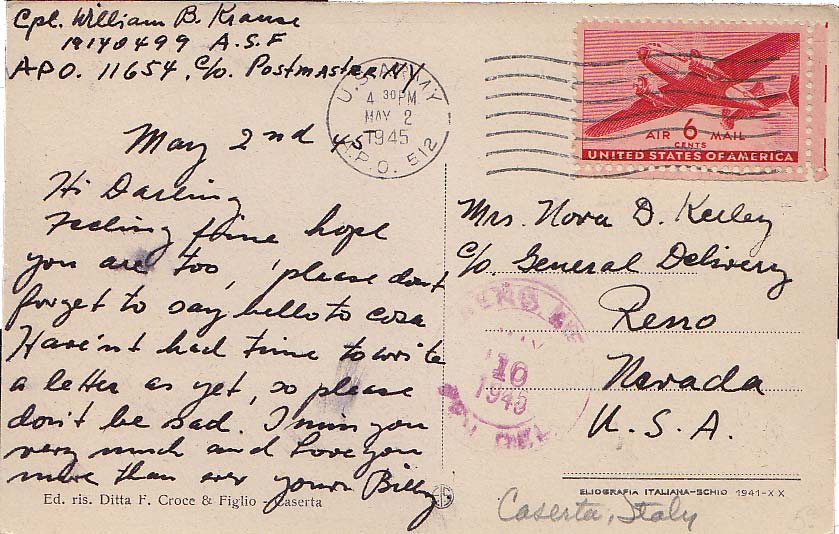 Cpl. William B. Krause
19140499 A.S.F
APO. 11654, c/o. Postmaster NY
U.S. ARMY
4 30 PM
MAY 2
1945
A.P.O. 512
AIR 6 MAIL
CENTS
UNITED STATES OF AMERICA
May 2nd 45
Hi Darling
Feeling fine hope
you are too, please don't
forget to say hello to cora
Haven't had time to write
a letter as yet, so please
don't be sad. I miss you
very much and Love you
more than ever yours Billy
Mrs. Nova D. Keeley
c/o. General Delivery
Reno
Nevada
U.S.A.
10
1945
Ed. ris. Ditta F. Croce & Figlio - Caserta
ELIOGRAFIA ITALIANA-SCHIO 1941-XX
Caserta, Italy